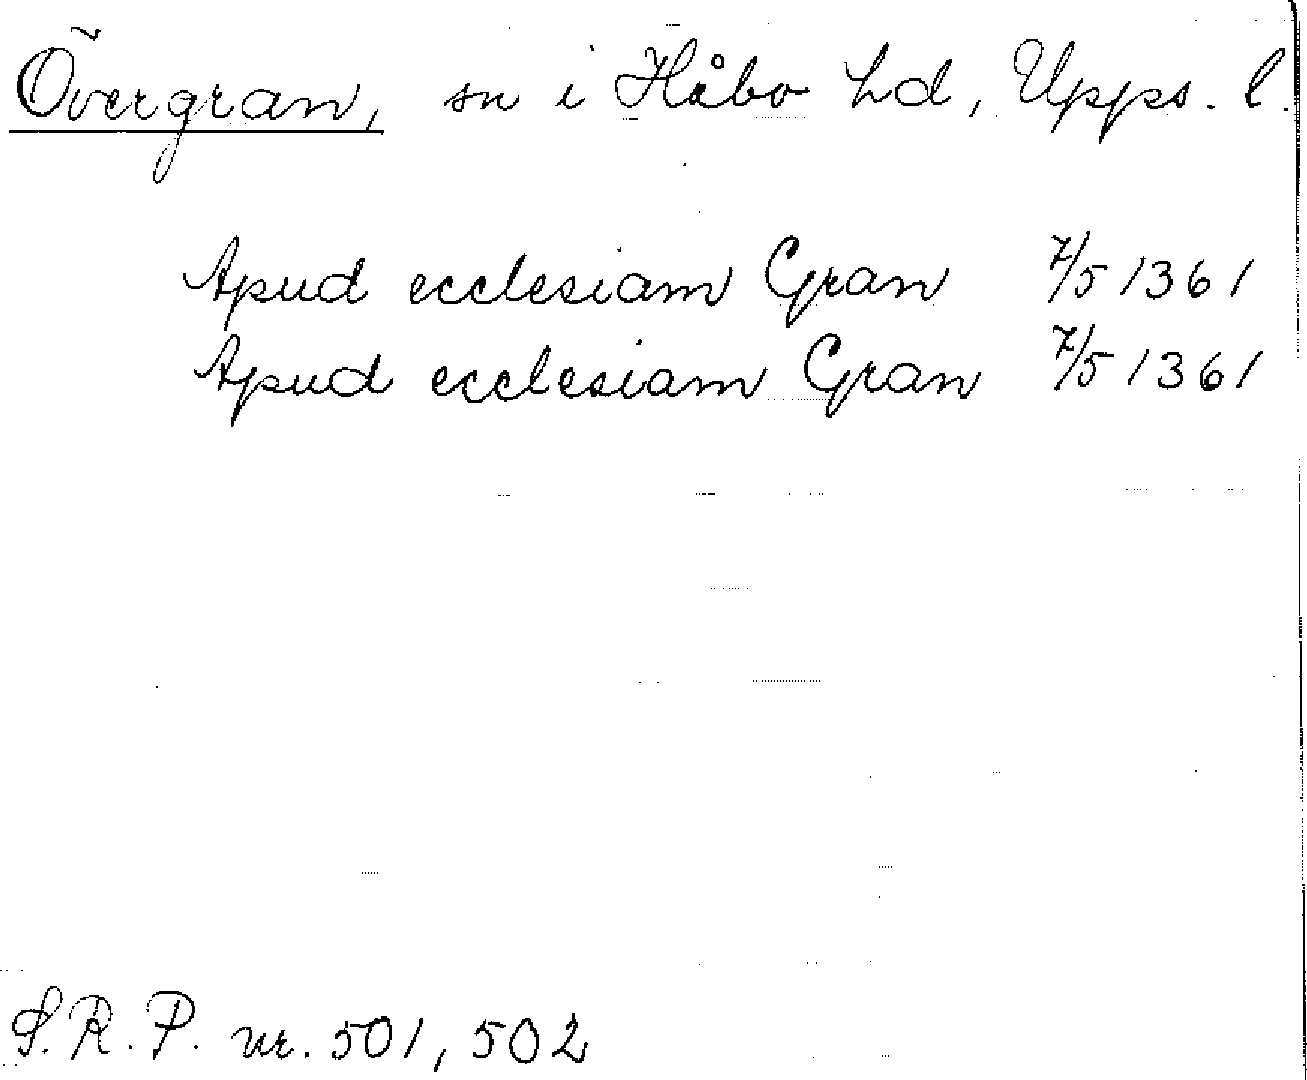 Övergran, sn i Håbo hd, Upps. l.
Apud ecclesiam Gran 7/5 1361
Apud ecclesiam Gran 7/5 1361
S.R.P. nr. 501, 502